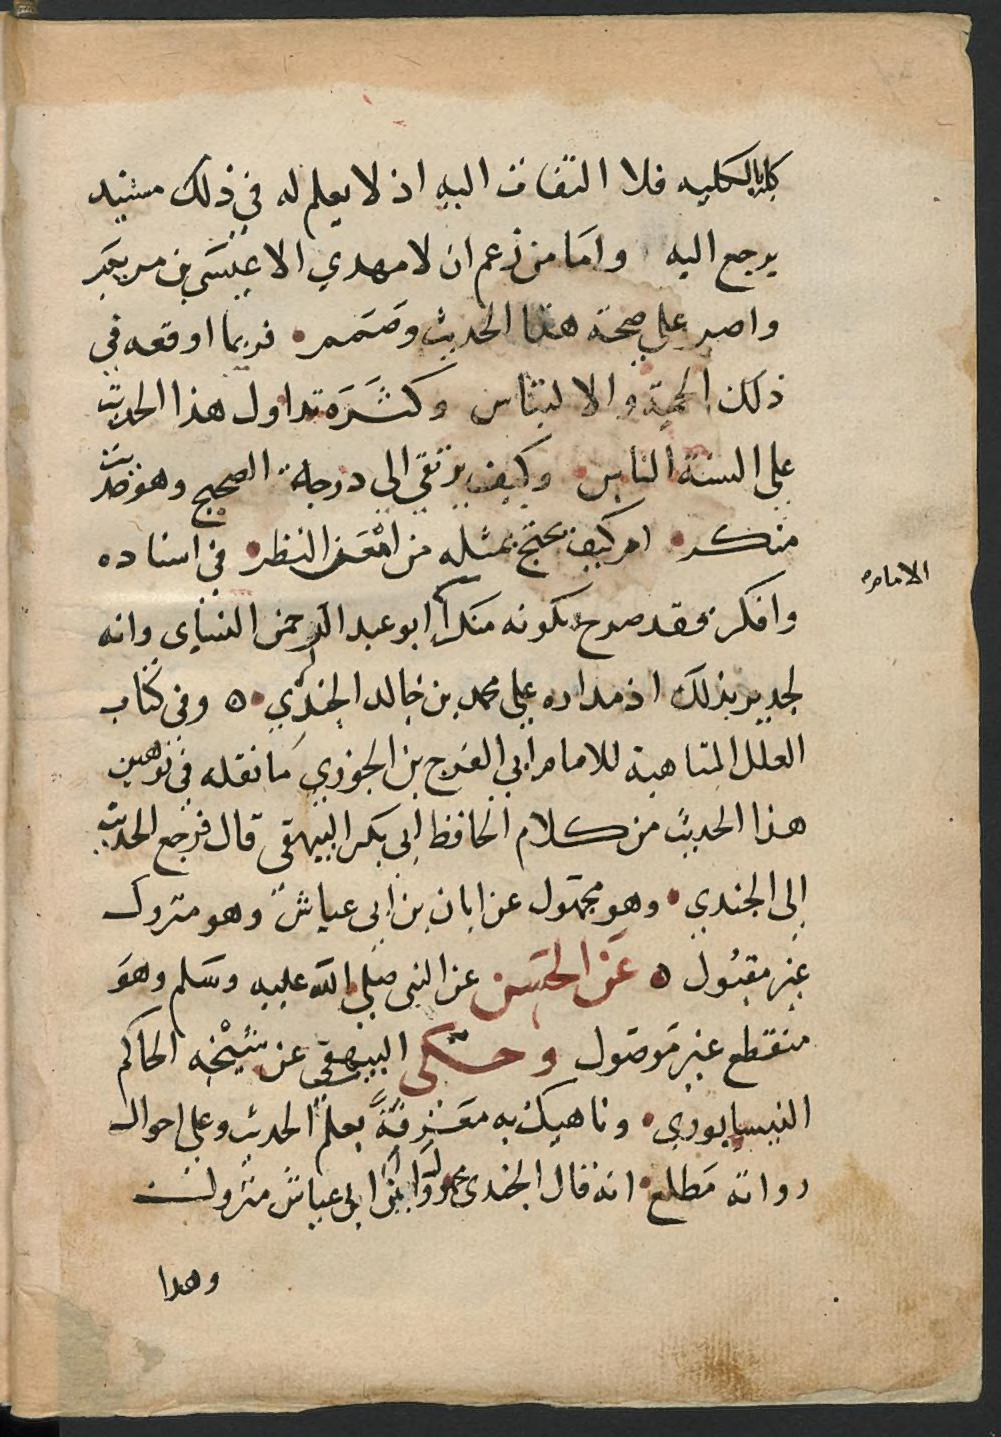 كله بالكليه فلا التفات اليه اذ لا يعلم له في ذلك مستند
يرجع اليه واما من زعم ان لا مهدي الا عيسى بن مريم
واصر على صحة هذا الحديث وصمم فربما اوقعه في
ذلك الحمية والالتباس وكثرة تداول هذا الحديث
على السنة الناس وكيف يرتقي الى درجة الصحيح وهو حديث
منكر ام كيف يحتج بمثله من امعن النظر في اسناده
وافكر فقد صرح بكونه منكرا ابو عبد الرحمن النسايى وانه
لجدير بذلك اذ مداره على محمد بن خالد الجندي ٥ وفي كتاب
العلل المتناهية للامام ابي الفرج بن الجوزي ما نقله في توهين
هذا الحديث من كلام الحافظ ابي بكر البيهقى قال فرجع الحديث
الى الجندي وهو مجهول عن ابان بن ابى عياش وهو متروك
غير مقبول ٥ عن الحسن عن النبى صلى الله عليه وسلم وهو
منقطع غير موصول وحكى البيهقى عن شيخه الحاكم
النيسابوري وناهيك به معرفة بعلم الحديث وعلى احوال
رواته مطلع انه قال الجندى مجهول وابن ابى عياش متروك
وهذا
الامام